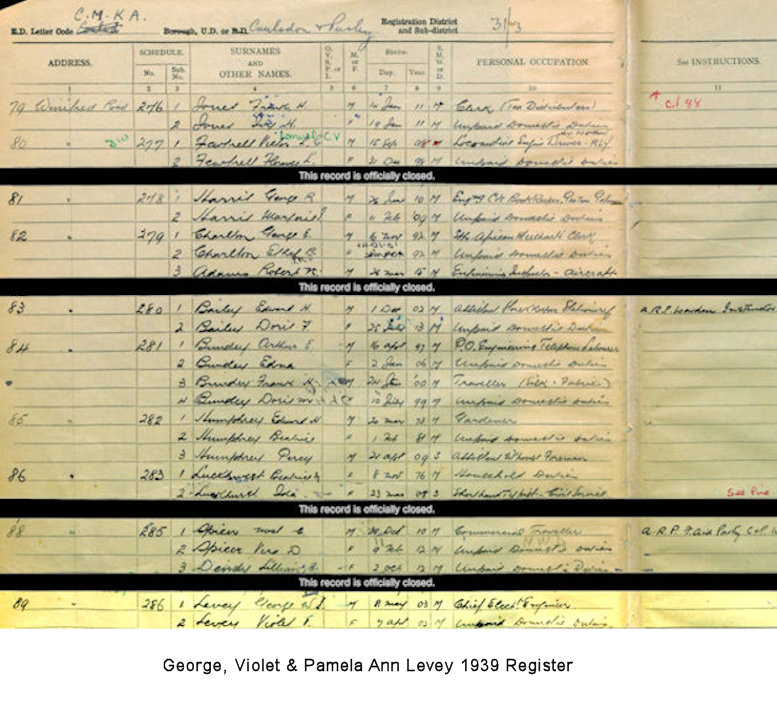 C.M.K.A.
E.D. Letter Code Borough, U.D. or R.D. Coulsdon & Purley Registration District and Sub-district 31/3
ADDRESS. SCHEDULE. No. Sub. No. SURNAMES AND OTHER NAMES. O. V. S. P. or I. M. or F. BIRTH— Day. Year. S. M. W. or D. PERSONAL OCCUPATION See INSTRUCTIONS.
1 2 3 4 5 6 7 8 9 10 11
79 Winifred Road 276 1 Jones Frank H. M 14 Jan 11 M Clerk
2 Jones F 19 Jan 11 M Unpaid Domestic Duties
80 " 277 1 Fewtrell Victor M 15 Sep 98 M Locomotive Engine Driver Rly.
2 Fewtrell Florence L. F 21 Dec 98 M Unpaid Domestic Duties
This record is officially closed.
81 " 278 1 Harris George R M 26 10 M
2 Harris Marjorie F 11 Feb 09 M Unpaid Domestic Duties
82 " 279 1 Charlton George E. M 6 Nov 92 M Sth African Merchants Clerk
2 Charlton Ethel B. F 92 M Unpaid Domestic Duties
3 Adams Robert M 26 Mar 15 M Aircraft
This record is officially closed.
83 " 280 1 Bailey Edward H. M 1 Dec 02 M Assistant Storekeeper A.R.P. Warden Instructor
2 Bailey Doris F 25 13 M Unpaid Domestic Duties
84 " 281 1 Bundey Arthur E M 16 Apl 97 M P.O. Engineering Telephone Labourer
2 Bundey Edna F 2 Jan 06 M Unpaid Domestic Duties
3 Bundey Frank M 24 00 M Traveller
4 Bundey Doris M F 10 July 99 M Unpaid Domestic Duties
85 " 282 1 Humphrey Edward H M 20 Mar 78 M Gardener
2 Humphrey Beatrice F 1 Feb 81 M Unpaid Domestic Duties
3 Humphrey Percy M 21 Apl 09 S Assistant W'house Foreman
86 " 283 1 Luckhurst Beatrice F 8 Nov 76 M Household Duties
2 Luckhurst F 23 Mar 08 S Shorthand Typist Civil Service See
This record is officially closed.
88 " 285 1 Spicer M 24 Oct 10 M Commercial Traveller A.R.P. F. Aid Party
2 Spicer Vera D F 9 Feb 12 M Unpaid Domestic Duties
3 Dendy Lillian F 2 Oct 12 M Unpaid Domestic Duties
This record is officially closed.
89 " 286 1 Levey George W.S. M 8 May 03 M Chief Elect. Engineer
2 Levey Violet F. F 7 Apl 03 M Unpaid Domestic Duties
George, Violet & Pamela Ann Levey 1939 Register